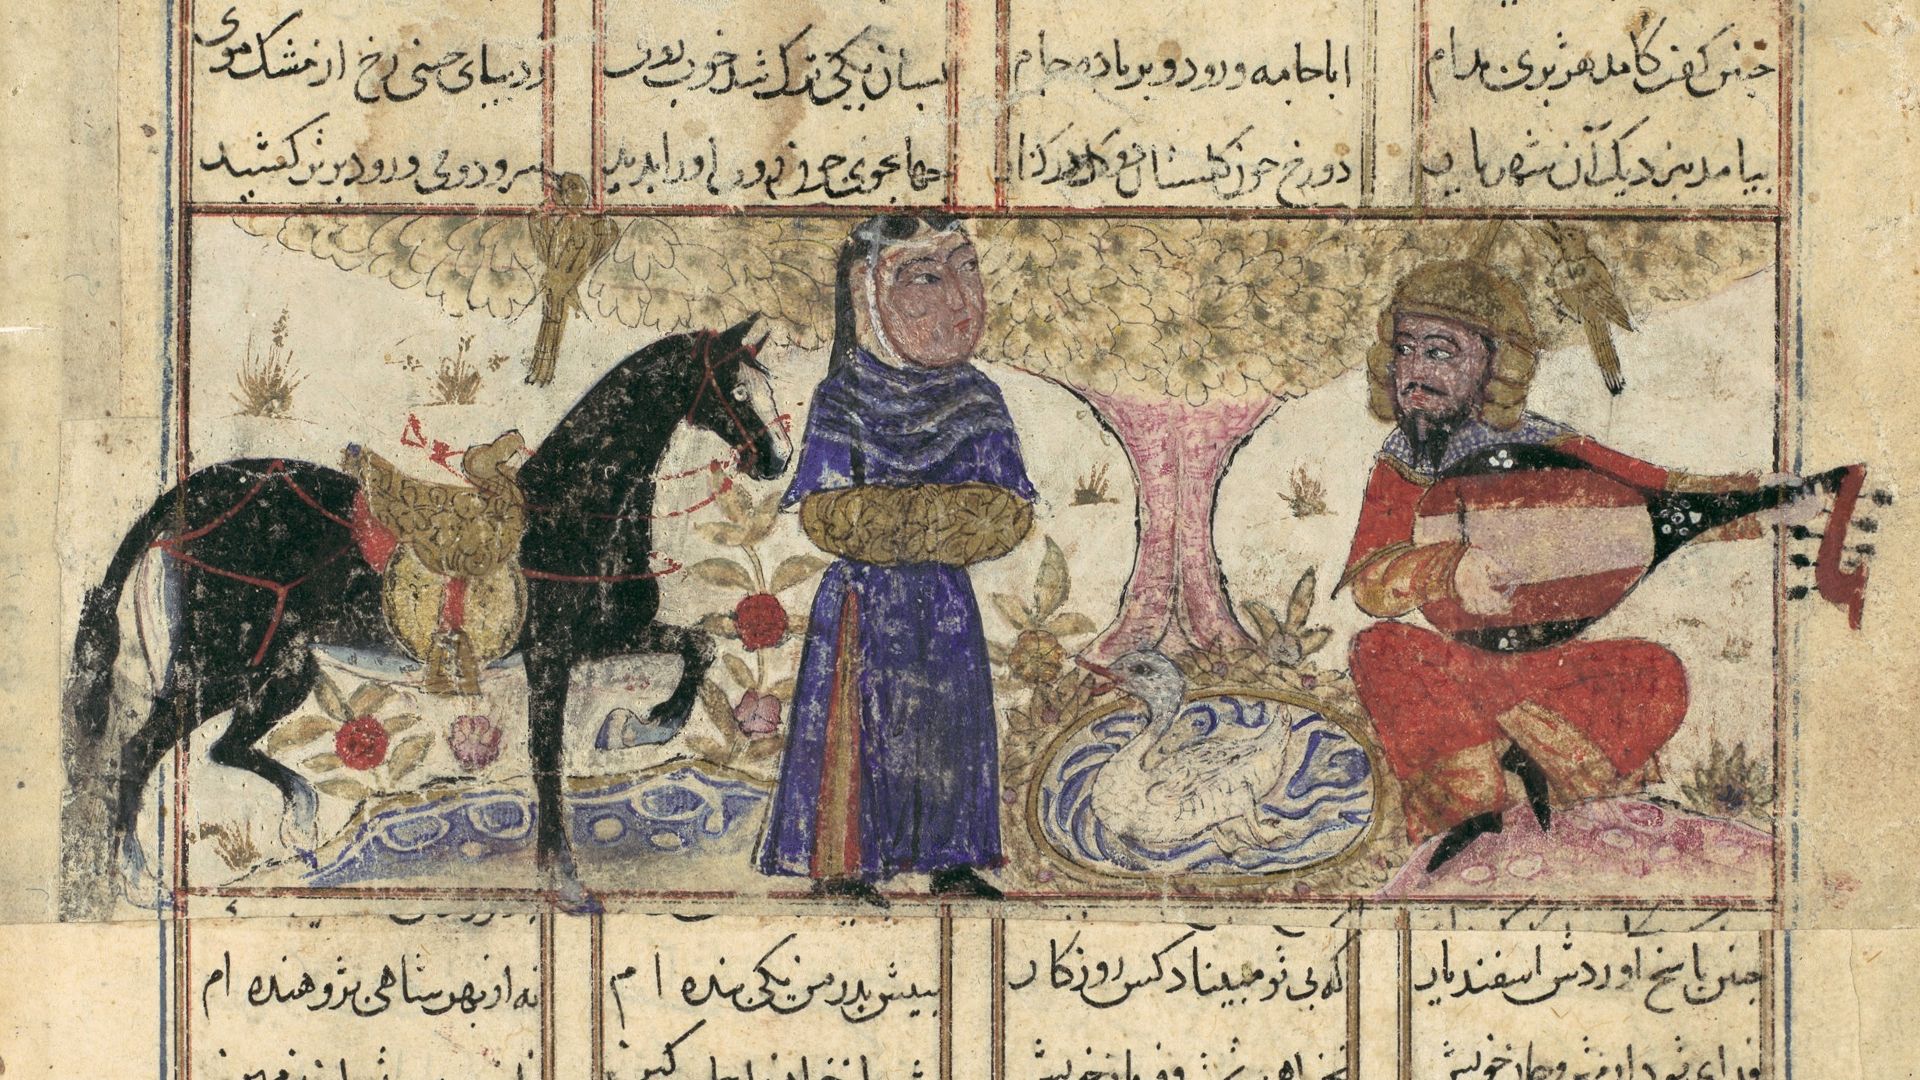 جنین کفت کامد هژبری بدام ابا جامه و رود و بر باده جام بسان یکی ترک شد خوب روی ز دیبای جینی رخ از مشک موی
بیامد بنزدیک آن شهریار دو رخ جون کلستان و کل در کنار جهانجوی جون روی او را بدید سرود و می و رود برتر کشید
جنین باسخ اوردش اسفندیار که بی تو مبیناد کس روزکار ببیش بدر من یکی بنده ام نه از بهر شاهی بژوهنده ام